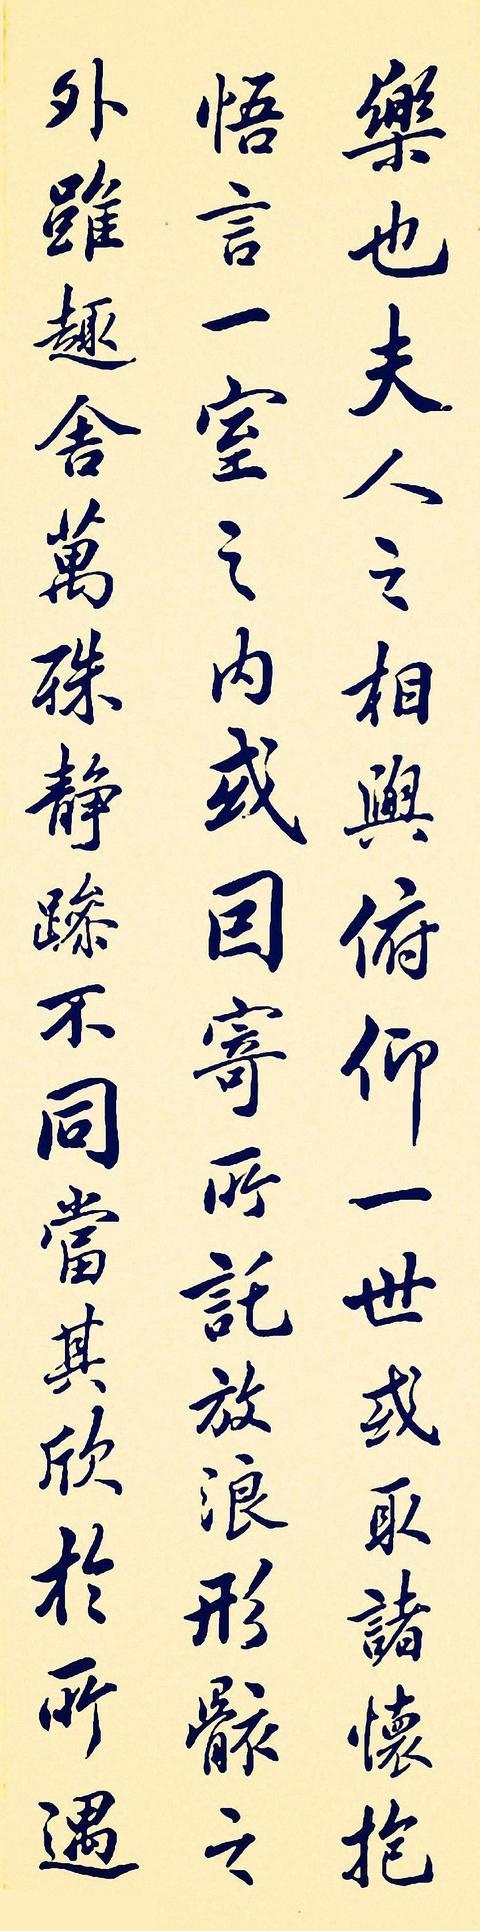 樂也夫人之相與俯仰一世或取諸懷抱
悟言一室之內或因寄所託放浪形骸之
外雖趣舍萬殊靜躁不同當其欣於所遇